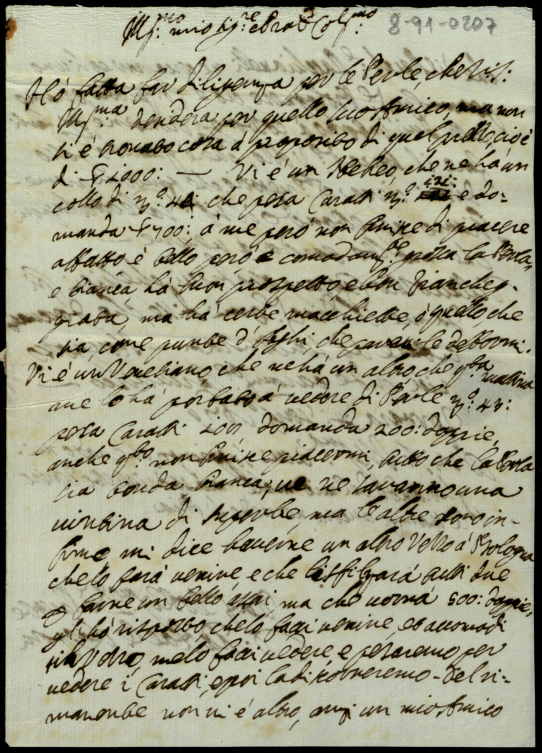 8-91-0207
Ill.mo mio Sig.re e Pad.e Col.mo
Hò fatta far diligenza per le Perle, che V.S:
Ill.ma desidera per quello suo Amico, ma non
si è trovato cosa à proposito di quel prezzo, cioè
di 2000: — Vi è un Hebreo, che ne ha un
collo di n.o 41: che pesa Caratti n.o e do-
manda 700: à me però non finisce di piacere
affatto è bello però è comodam.te grossa la Perla,
e bianca, ha buon prospetto e ben
ma ha certe macchiette, ò quello che
sia, come punte d'Aghi, che
Vi è un Venetiano che ne hà un altro che q.ta mattina
me lo hà portato à vedere di Perle n.o 43:
pesa Caratti 200 domanda 200: doppie,
anche q.to non finisce piacermi, tutto che la Perla
sia tonda bianca, ve ne saranno una
vintina di superbe, ma le altre sono in-
fime mi dice haverne un altro Vezzo à Bologna
che lo farà venire e che tutti due
p farne un bello assai, ma che vorrà 500: doppie,
gl'hò risposto che lo facci venire,
me lo facci vedere e peseremo, per
vedere i Caratti, e poi la discorreremo. Del ri-
manente non vi è altro, un mio Amico